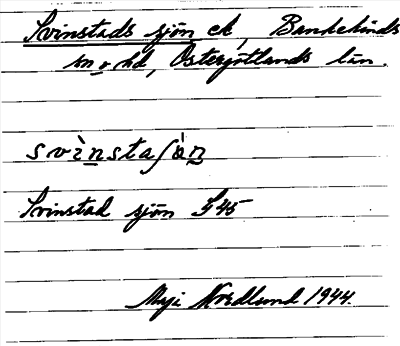 Svinstads sjön ek, Bankekinds
sn o hd, Östergötlands län.
svìnstaʃö̀n
Svinstad sjön S45
Maji Nordlund 1944.